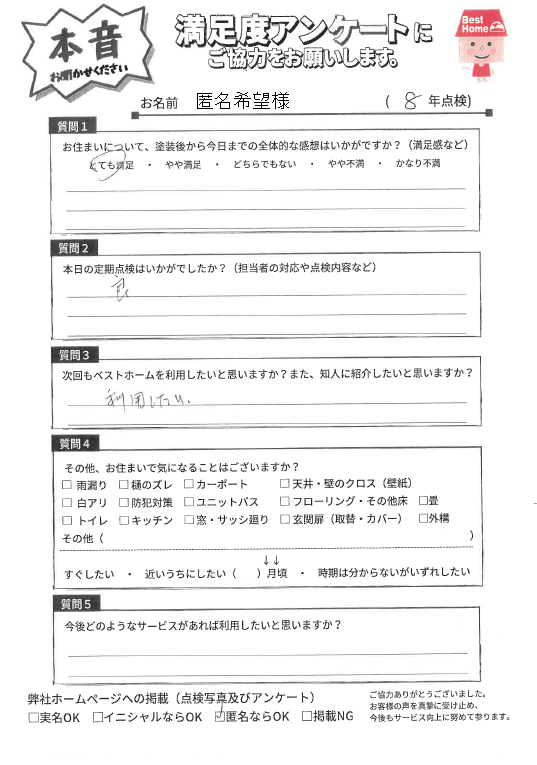 本音
お聞かせください
満足度アンケートに
ご協力をお願いします。
Best Home
お名前 匿名希望様 ( 8 年点検)
質問1
お住まいについて、塗装後から今日までの全体的な感想はいかがですか?(満足感など)
とても満足 ・ やや満足 ・ どちらでもない ・ やや不満 ・ かなり不満
質問2
本日の定期点検はいかがでしたか?(担当者の対応や点検内容など)
良
質問3
次回もベストホームを利用したいと思いますか?また、知人に紹介したいと思いますか?
利用したい.
質問4
その他、お住まいで気になることはございますか?
□ 雨漏り □ 樋のズレ □ カーポート □ 天井・壁のクロス(壁紙)
□ 白アリ □ 防犯対策 □ ユニットバス □ フローリング・その他床 □畳
□ トイレ □ キッチン □ 窓・サッシ廻り □ 玄関扉(取替・カバー) □外構
その他( )
↓↓
すぐしたい ・ 近いうちにしたい( )月頃 ・ 時期は分からないがいずれしたい
質問5
今後どのようなサービスがあれば利用したいと思いますか?
弊社ホームページへの掲載(点検写真及びアンケート)
□実名OK □イニシャルならOK ☑匿名ならOK □掲載NG
ご協力ありがとうございました。
お客様の声を真摯に受け止め、
今後もサービス向上に努めて参ります。